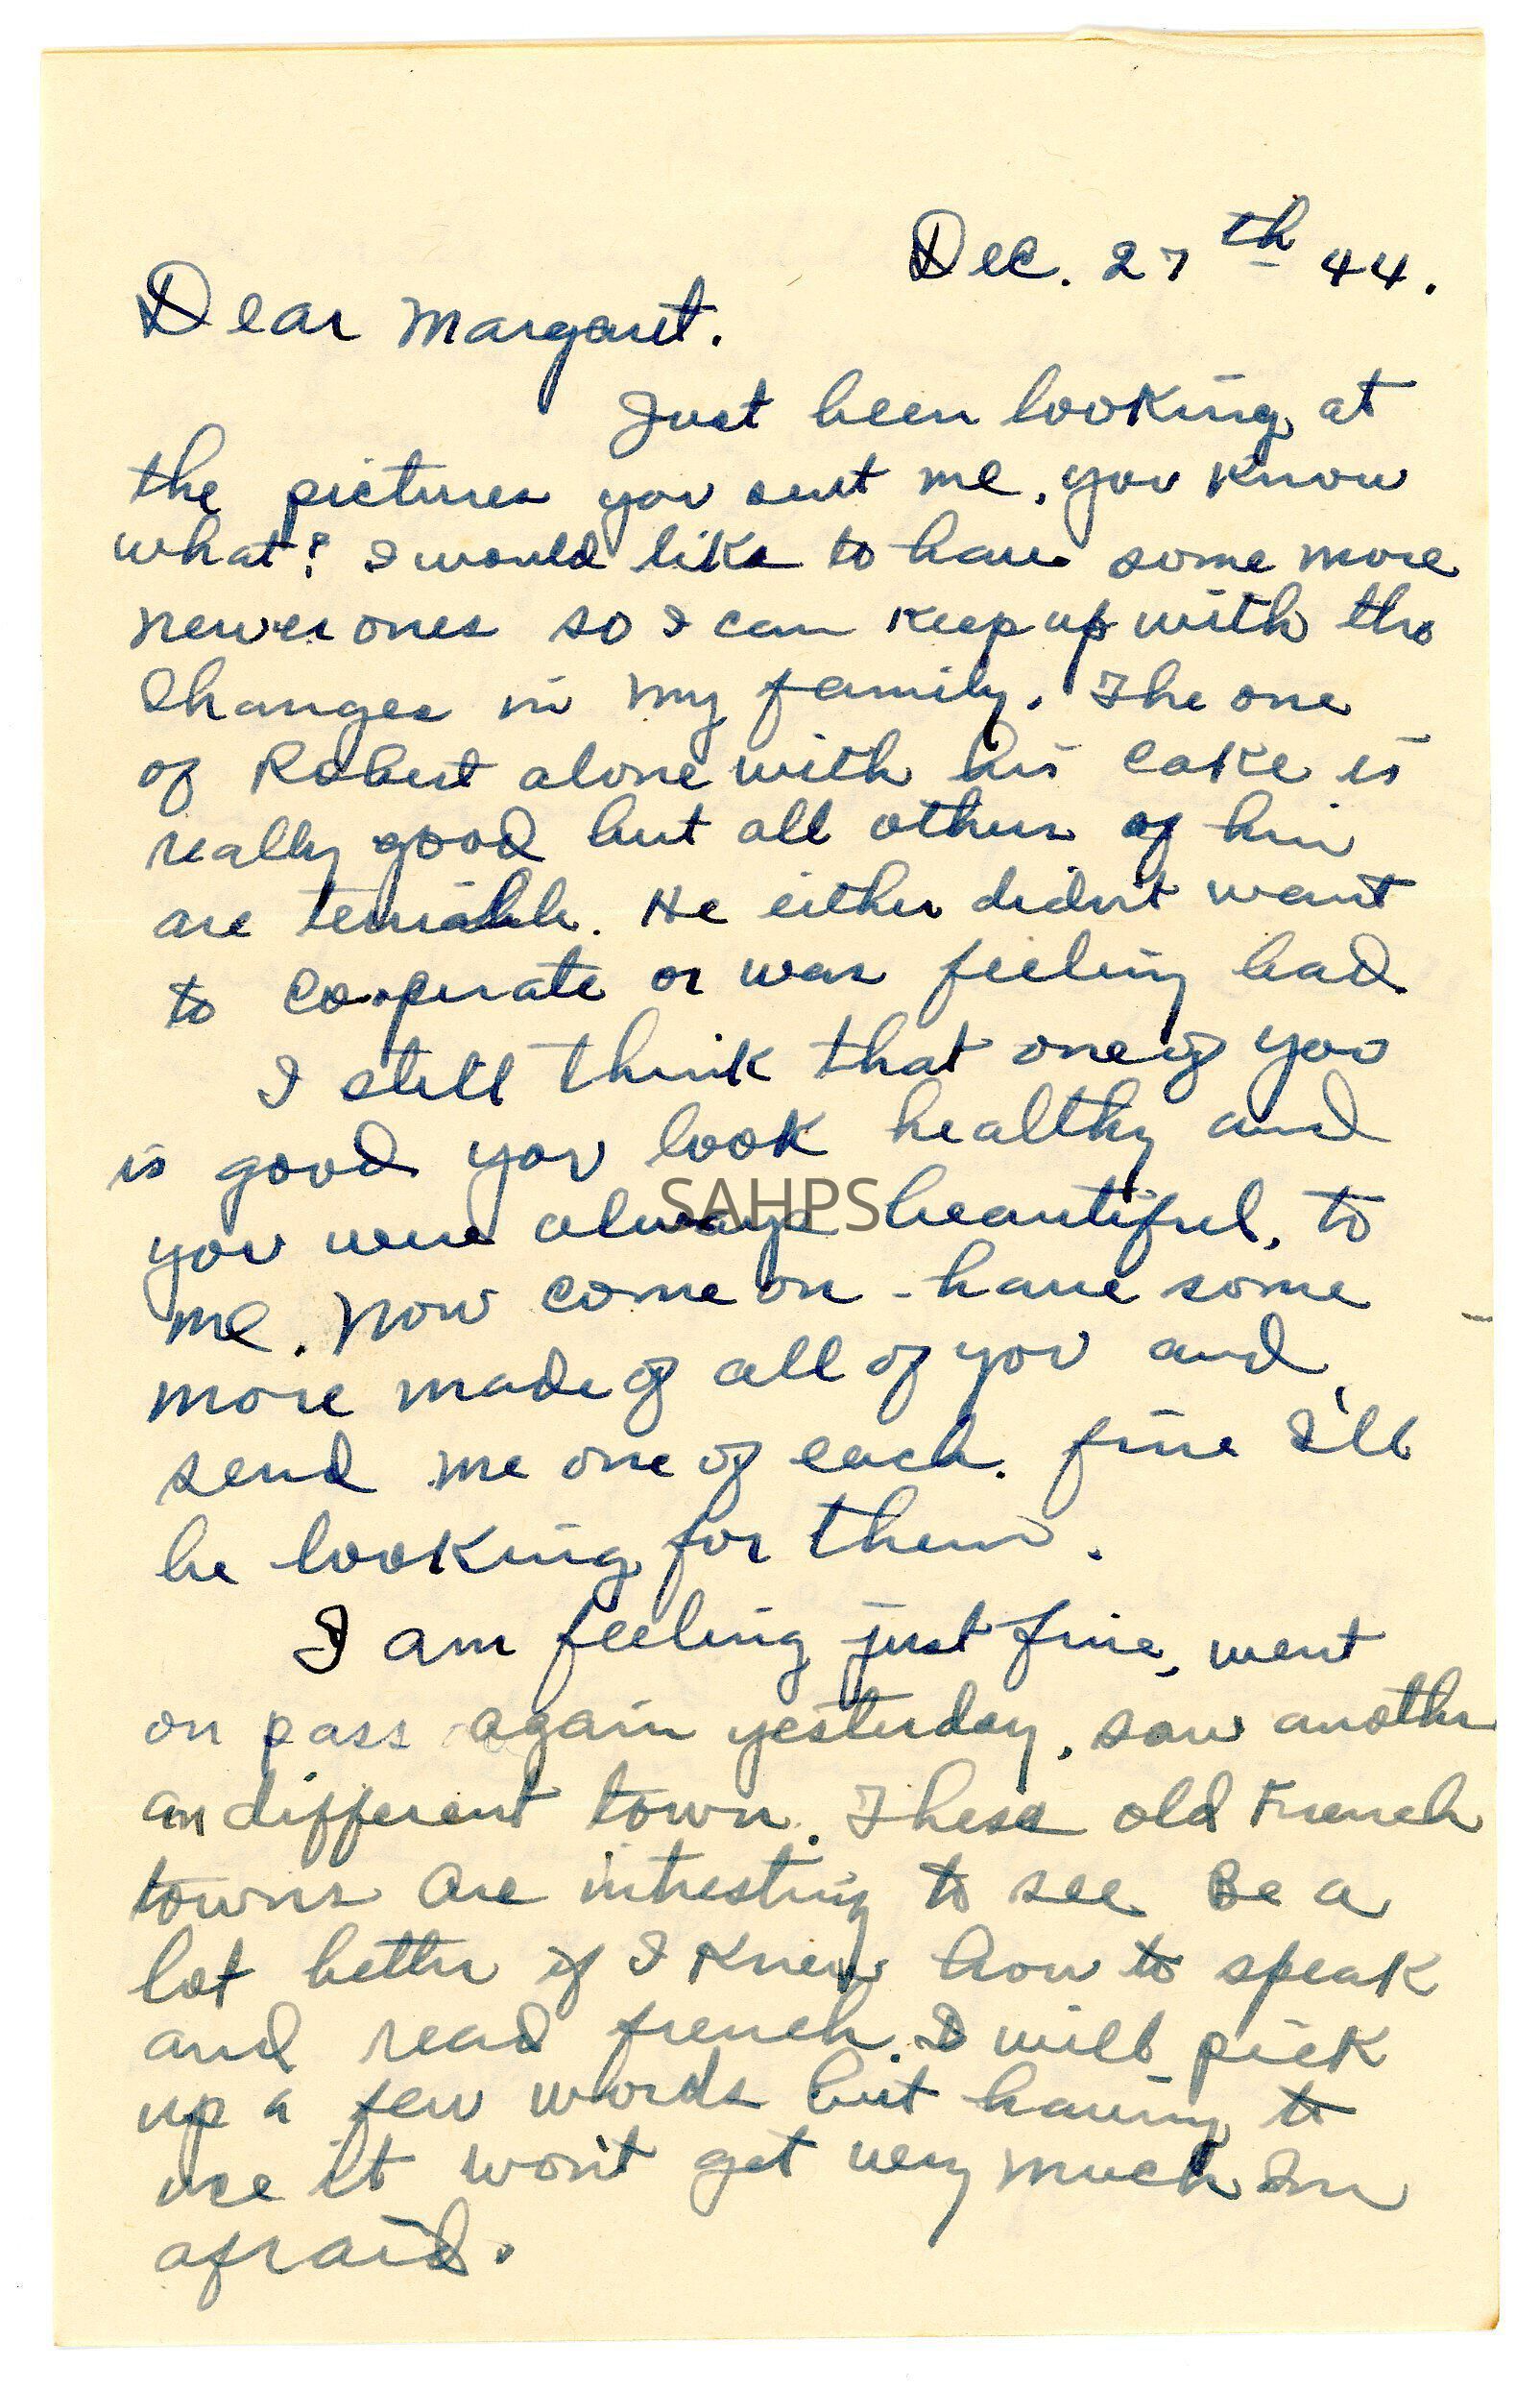 Dec. 27th 44.
Dear Margaret.
Just been looking at
the pictures you sent me, you know
what? I would like to have some more
newer ones so I can keep up with the
changes in my family. The one
of Robert alone with his cake is
really good but all others of him
are terriable. He either didn't want
to cooperate or was feeling bad
I still think that one of you
is good you look healthy and
you were always beautiful, to
SAHPS
me. Now come on - have some
more made of all of you and,
send me one of each. fine I'll
be looking for them.
I am feeling just fine, went
on pass again yesterday, saw another
an different town. These old French
towns are intresting to see Be a
lot better if I knew how to speak
and read french. I will pick
up a few words but having to
use it won't get very much Im
afraid.